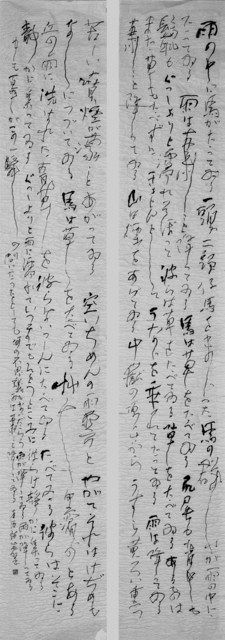 雨の中に馬がたつてゐる 一頭二頭仔馬をまじへた馬の群れが 雨の中に
たつてゐる 雨は蕭々と降つてゐる 馬は草をたべてゐる 尻尾も背中も
鬣も ぐつしよりと濡れそぼつて 彼らは草をたべてゐる 草をたべてゐる あるものは
また草もたべずに きよとんとしてうなじを垂れてたつてゐる 雨は降つてゐる
蕭々と降つてゐる 山は煙をあげてゐる 中嶽の頂きから うすら黄ろい 重つ
苦しい噴煙が濛々とあがつてゐる 空いちめんの雨雲と やがてそれはけぢめも
なしにつづいてゐる 馬は草をたべてゐる 艸千里浜のとある
丘の 雨に洗はれた青草を 彼らはいつしんにたべてゐる たべてゐる 彼らはそこに
みんな静かにたつてゐる ぐつしよりと雨に濡れて いつまでもひとつところに 彼らは静かに集つてゐる
もしも百年が この一瞬の間にたつたとしても 何の不思議もないだらう 雨が降つてゐる 雨が降つてゐる 雨は蕭々と降つてゐる